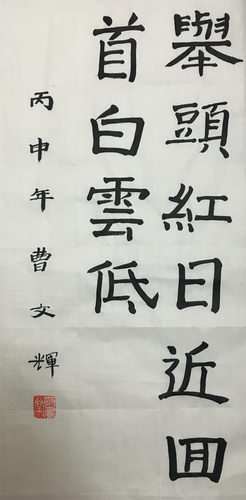 舉頭紅日近囬
首白雲低
丙申年曹文輝